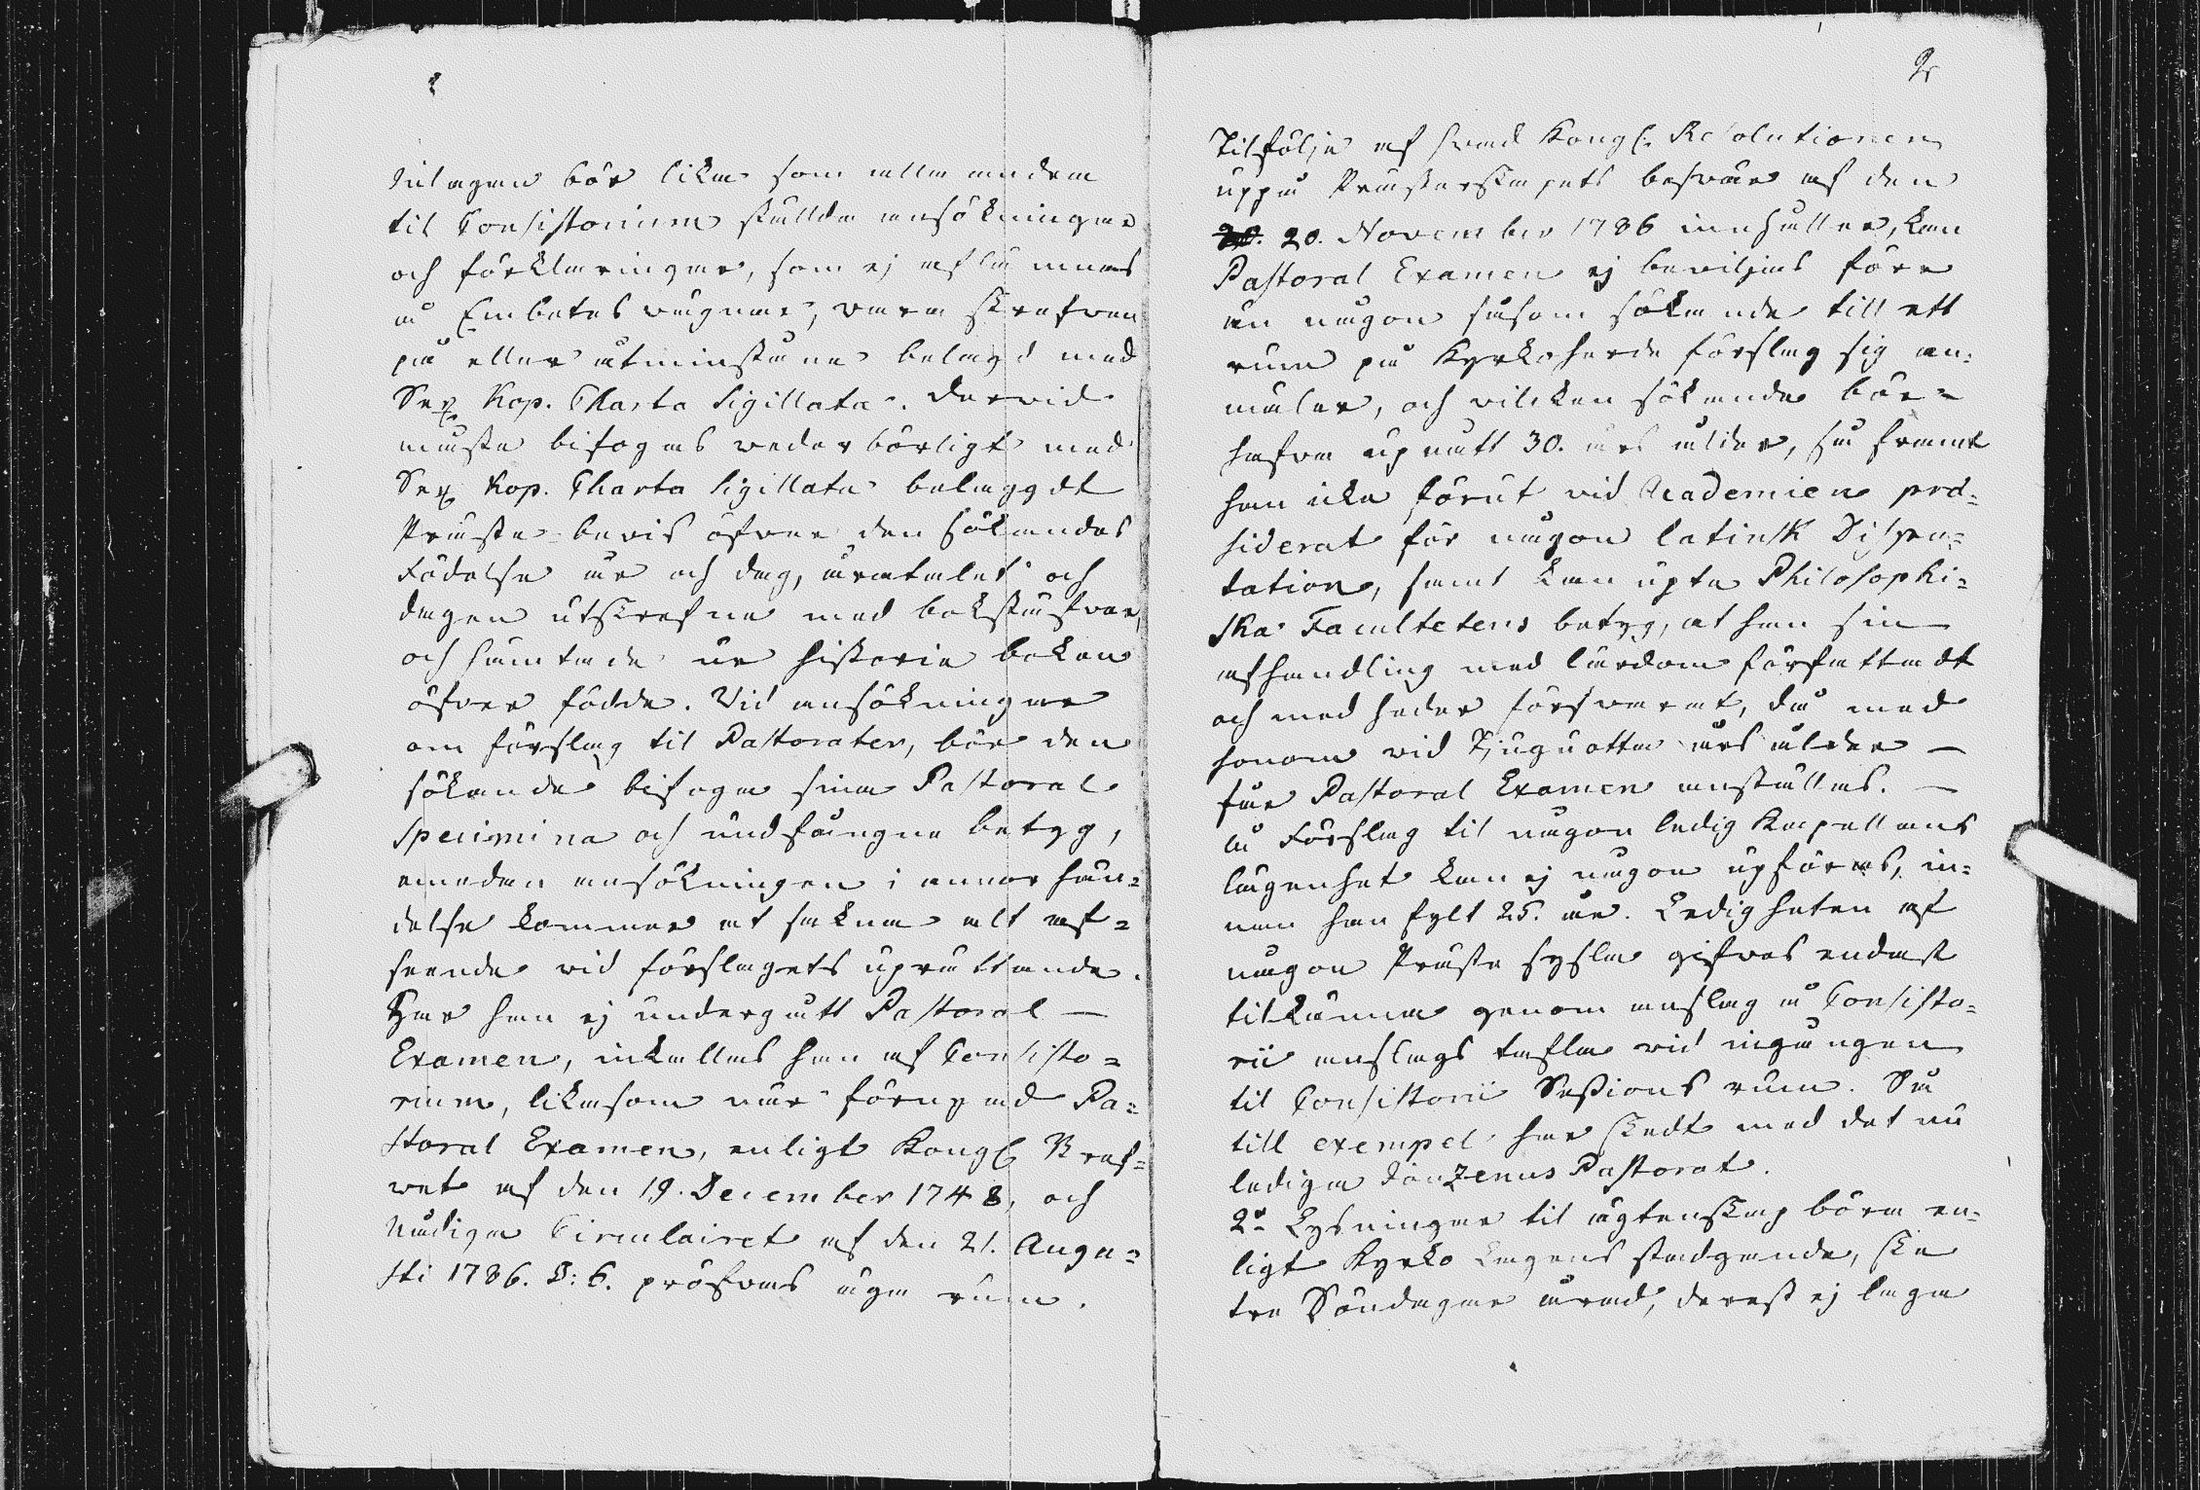 Inlagan bör lika som alla andra
til Consistorium stäldta ansökningar
och förklaringar, som ej aflämnas
å Embetes vägnar, vara skrefven
på eller åtminstone belagd med
Sex Kop. Charta Sigillata. Dervid
måste bifogas vederbörligt med
Sex Kop. Charta Sigillata belaggdt
Präste-bevis öfver den sökandes
Födelse år och dag, åratalet och
dagen utskrefne med bokstäfver,
och hämtade ur historie boken
öfver födde. Vid ansökningar
om förslag til Pastorater, bör den
sökande bifoga sina Pastoral
Specimina och undfångna betyg,
emedan ansökningen i annor hän-
delse kommer at sakna alt af-
seende vid förslagets uprättande.
Har han ej undergått Pastoral —
Examen, inkallas han af Consisto=
rium, likasom när förnyad Pa=
storal Examen, enligt Kongl Bref-
wet af den 19. December 1748, och
Nådiga Circulairet af den 21. Augu=
sti 1786. §: 6. pröfvas äga rum.
2
Tilfölje af hvad Kongl. Resolutionen
uppå Prästerskapets besvär af den
20. November 1786 innehåller, kan
Pastoral Examen ej beviljas förr
än någon såsom sökande till ett
rum på Kyrkoherde förslag sig an=
mäler, och vilcken sökande bör=
hafva upnått 30. års ålder, så framt
han icke förut vid Academien præ=
siderat för någon latinsk Dispu=
tation, samt kan upte Philosophi=
ska Facultetens betyg, at han sin
afhandling med lärdom författadt
och med heder försvarat, då med
honom vid Tjuguotta års ålder —
får Pastoral Examen anställas. —
Å Förslag til någon ledig Kapellans
lägenhet kan ej någon upföras, in=
nan han fylt 25. år. Ledigheten af
någon Präste sysla gifves endast
tilkänna genom anslag å Consisto=
rii anslags tafla vid ingången
til Consistorii Sessions rum. Så
till exempel har skedt med det nu
lediga Pastorat.
2o Lysningar til ägtenskap böra en=
ligt Kyrko Lagens stadgande, ske
tre Söndagar å rad, derest ej laga